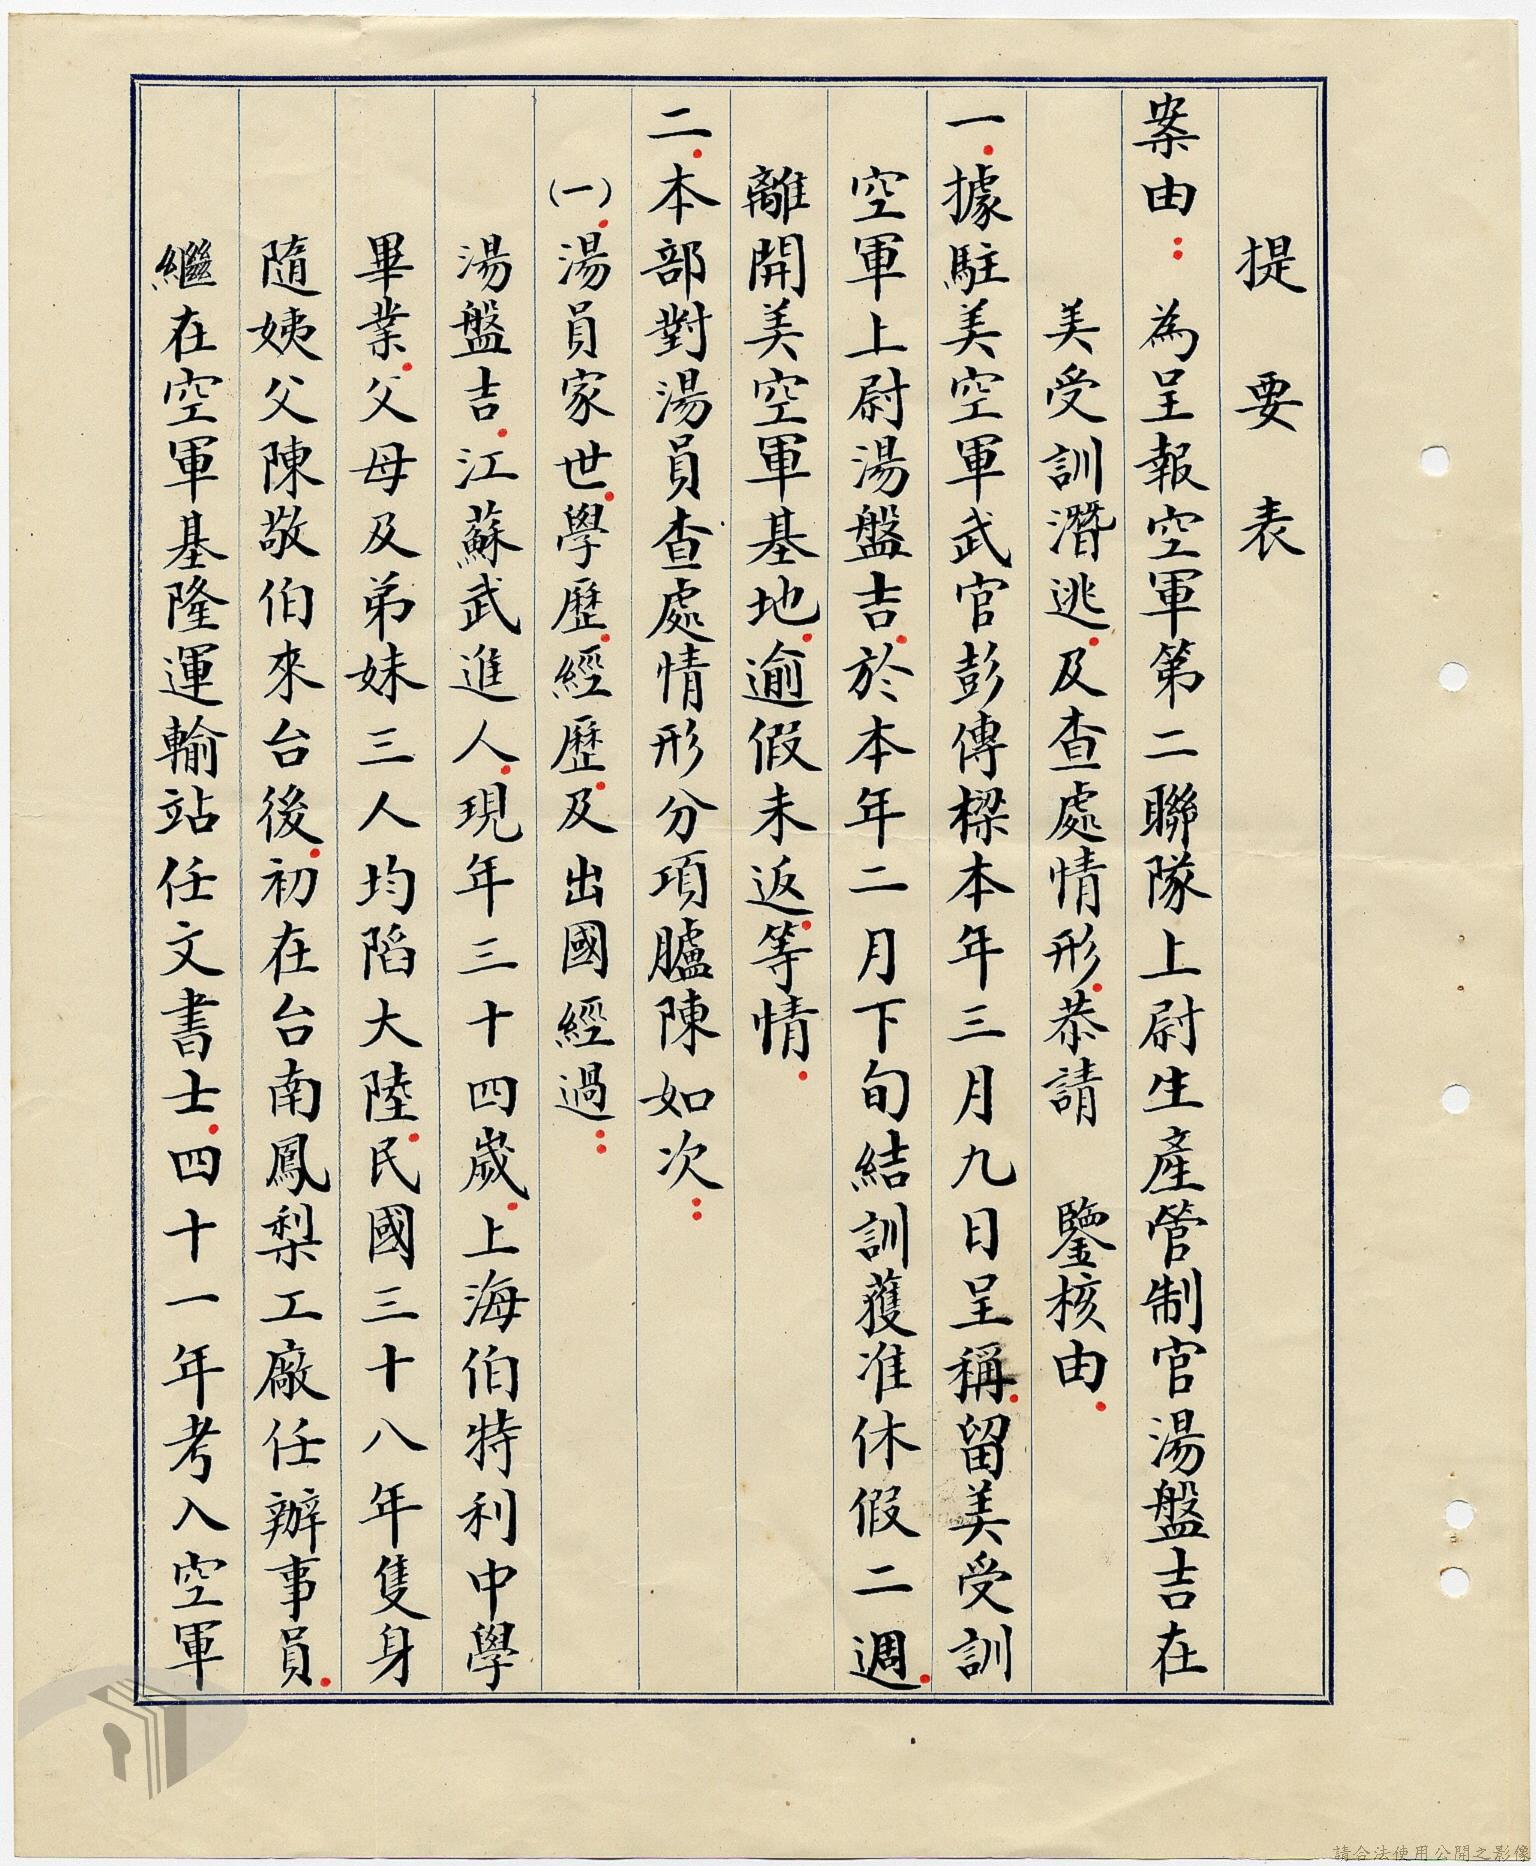 提要表
案由：為呈報空軍第二聯隊上尉生產管制官湯盤吉在
美受訓潛逃.及查處情形.恭請　鑒核由.
一.據駐美空軍武官彭傳樑本年三月九日呈稱.留美受訓
空軍上尉湯盤吉.於本年二月下旬結訓獲准休假二週.
離開美空軍基地.逾假未返.等情.
二.本部對湯員查處情形分項臚陳如次：
(一).湯員家世.學歷.經歷.及出國經過：
湯盤吉.江蘇武進人.現年三十四歲.上海伯特利中學
畢業.父母及弟妹三人均陷大陸.民國三十八年隻身
隨姨父陳敬伯來台後.初在台南鳳梨工廠任辦事員.
繼在空軍基隆運輸站任文書士.四十一年考入空軍
請合法使用公開之影像